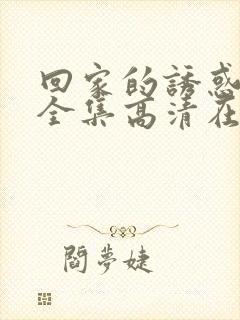 回家的誘惑
全集高清在
閻夢婕